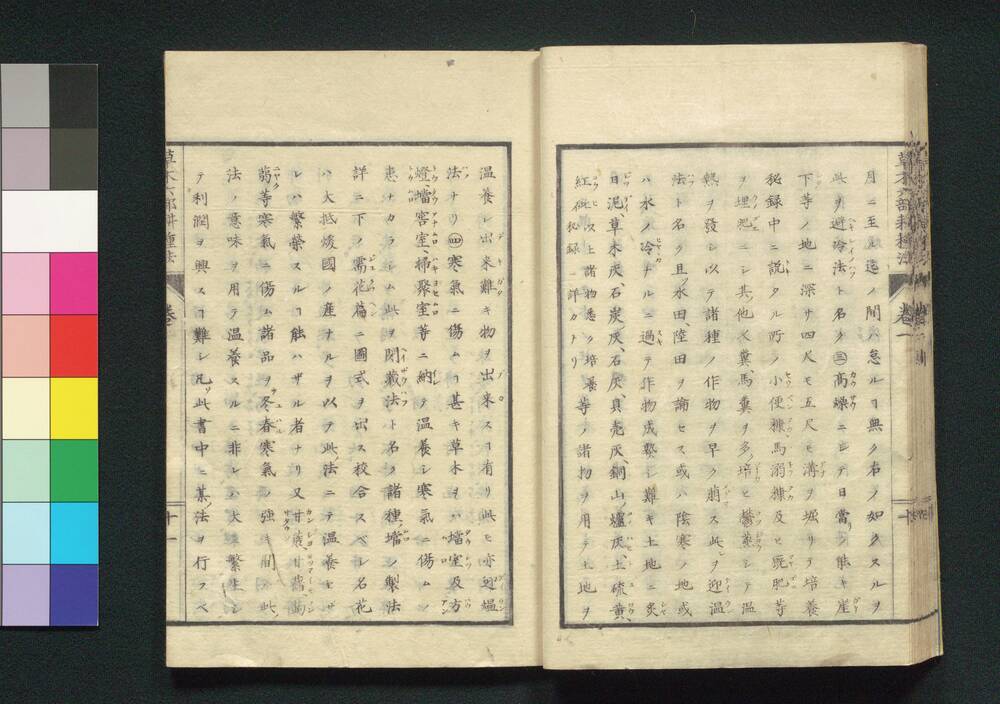 草木六部耕種法 卷一
月ニ至ル迄ノ間ハ怠ルヿ無ク右ノ如クスルヲ
此ヲ避冷法ト名ク㊂高燥ニシテ日當リ能キ崖
下等ノ地ニ深サ四尺モ五尺モ溝ヲ堀リ テ培養
秘録中ニ説タル所ノ小便糠馬溺糠及ヒ厩肥等
ヲ埋肥ニシ其他人糞馬糞ヲ多培ヒ鬱蒸シテ温
熱ヲ發シ以テ諸種ノ作物ヲ早ク萠ス此ヲ迎温
法ト名ク且ツ水田、陸田ヲ論セス或ハ陰寒ノ地或
ハ水ノ冷ナルニ過テ作物成繁シ難キ土地ニ炙
日泥、草木灰、石炭灰、石灰、貝壳灰、銅山ノ爐灰、土硫黄、
紅砒以上諸物悉ク培養等ノ諸物ヲ用テ土地ヲ
秘録ニ詳カナリ
温養シ出来難キ物ヲ出来スヿ有リ此モ亦迎煴
法ナリ㊃寒氣ニ傷ムヿ甚キ草木ヲハ壋室及方
燈壋窖室、掃聚室等ニ納テ温養シ寒氣ニ傷ムノ
患ナカラシム此ヲ閉藏法ト名ク諸種ノ壋ノ製法
詳ニ下ノ需花篇ニ圖式ヲ出ス校合スベシ名花
ハ大抵煖國ノ産ナルヲ以テ此法ニテ温養セザ
レハ繁榮スルヿ能ハザル者ナリ又甘蔗、甘藷、蒟
蒻等寒氣ニ傷ム諸品ヲ冬春寒氣ノ強キ間ハ此
法ノ意味ヲ用テ温養スルニ非レハ大ニ繁生シ
テ利潤ヲ興スヿ難シ凡ソ此書中ニ某法ヲ行フベ
草木六部耕種法 卷一 十一